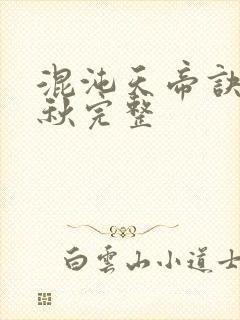 混沌天帝訣
秋完整
白雲山小道士